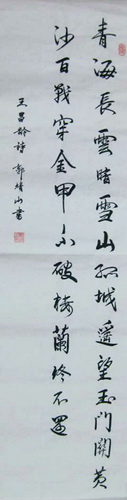 青海長雲暗雪山孤城遥望玉門關黄
沙百戰穿金甲不破樓蘭终不還
王昌齡詩 郭靖山書